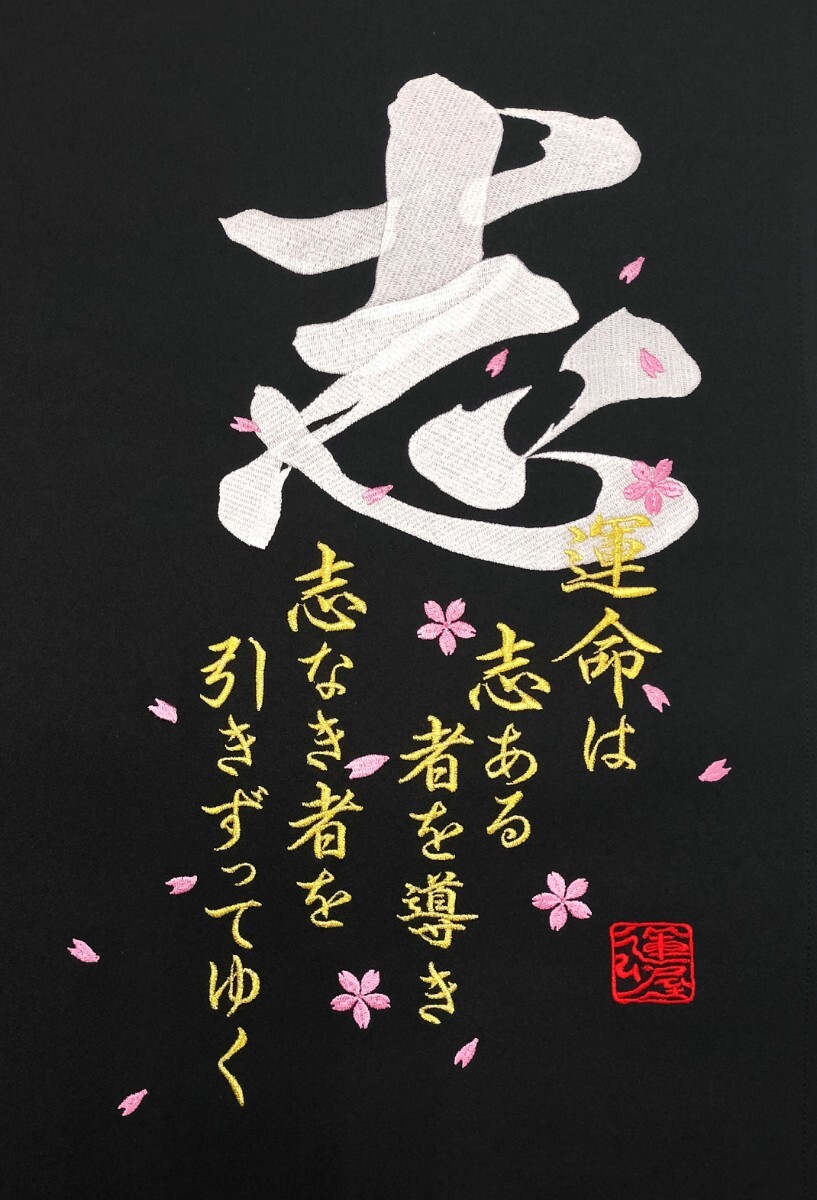 志
運命は
志ある
者を導き
志なき者を
引きずってゆく
運び屋